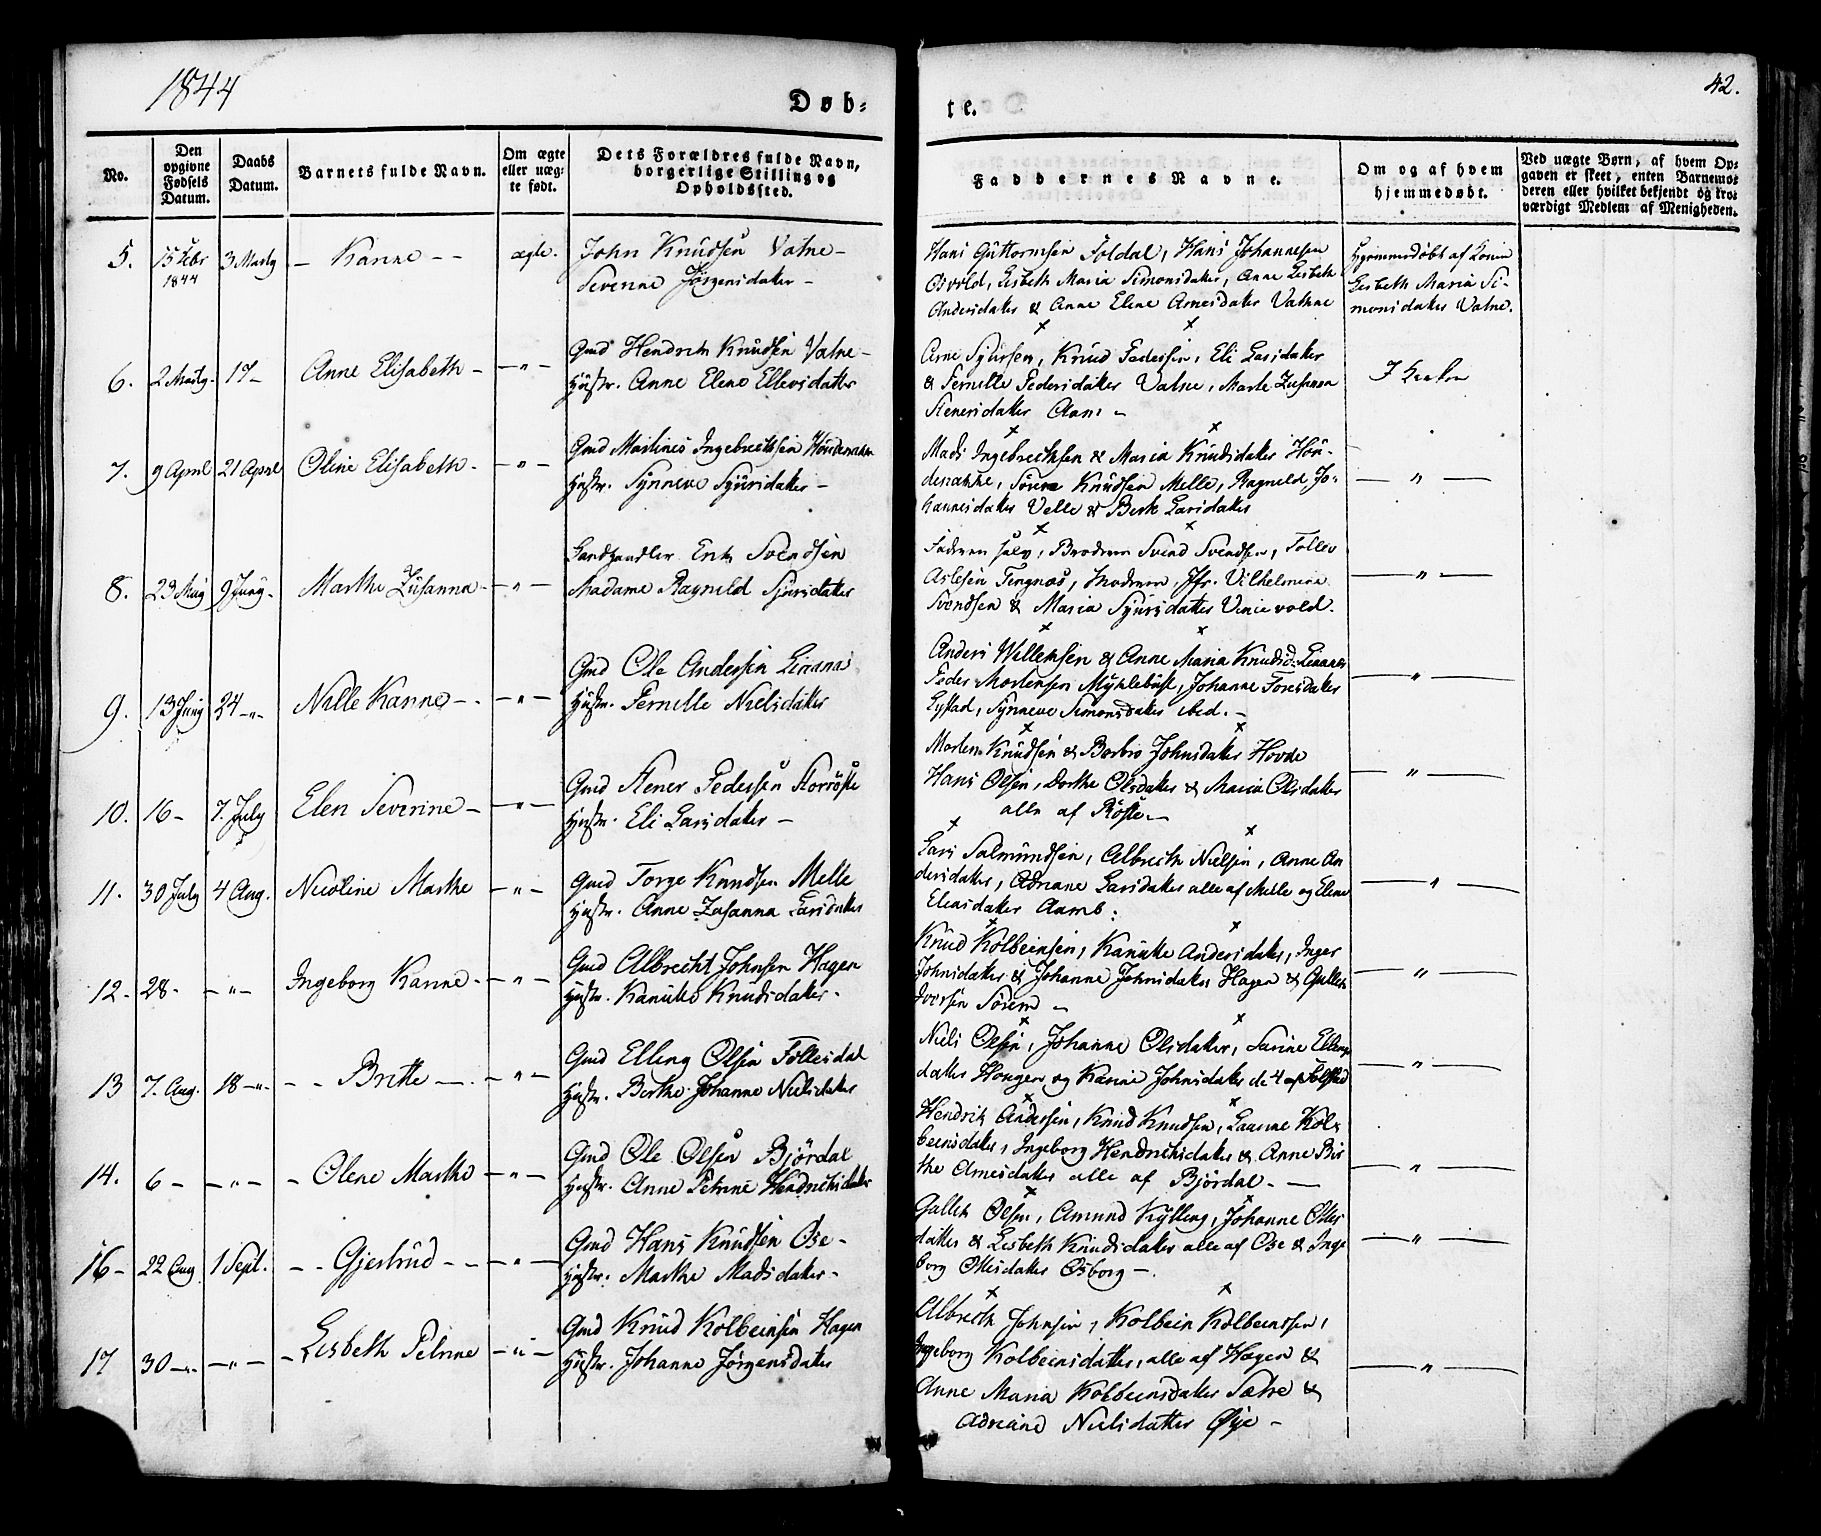 1844
Døb=
te.
42.
No.
Den opgivne Fødsels Datum.
Daabs Datum.
Barnets fulde Navn.
Om ægte eller uæg-te født.
Dets Forældres fulde Navn, borgerlige Stilling og Opholdssted.
Faddernes Navne.
Om og af hvem hjemmedøbt.
Ved uægte Børn, af hvem Op-gaven er skeet, enten Barnemo-deren eller hvilket bekjendt og tro-værdigt Medlem af Menigheden.
5. 15 Febr 1844 3 Marty – Hanne – – ægte. John Knudsen Vatne –
Severine Jörgensdatter –
Hans Guttormsen Foldal, Hans Johannesen
Osvold, Lisbeth Maria Simonsdatter, Anne Lisbeth
Andersdatter & Anne Elene Arnesdatter Vatne
Hjemmedøbt af
Lisbeth Maria Si-
monsdatter Vatne.
6. 2 Marty. 17 – Anne Elisabeth – – " – Gmd Hendrik Knudsen Vatne –
Hustr. Anne Elene Ellevsdatter
Arne Sjursen, Knud Pedersen, Eli Larsdatter
& Pernelle Pedersdatter Vatne, Marte Zusanna
Stenersdatter Aam –
I Kirken
7. 9 April 21 April Oline Elisabeth – – " – Gmd Martines Ingebrethsen
Hustr. Synneve Sjursdatter –
Mads Ingebrethsen & Maria Knudsdatter Hun-
denakke, Knudsen Melle, Ragneld Jo-
hannesdatter Velle & Larsdatter
– " –
8. 23 May 9 Juny. Marthe Zusanna – – " – Landhandler Erik Svendsen
Madame Ragneld Sjursdatter
Faderen selv, Broderen Svend Svendsen, Tollev
Aslesen Moderen, Jfr. Vilhelmine
Svendsen & Maria Sjursdatter
– " –
9. 13 Juny 24 – " – Nille Hanne – . – " – Gmd Ole Andersen
Hustr. Pernelle Nielsdatter
Anders Willemsen & Anne Maria Knudsd:
Peder Mortensen Myklebust, Johanne
Synneve Simonsdatter ibed. –
– " –
10. 16 – 7. July Elen Severine – – " – Gmd Stener Pedersen
Hustr. Eli Larsdatter –
Morten Knudsen & Barbro Johnsdatter Hovde
Hans Olsen, Dorthe Olsdatter & Maria Olsdatter
alle af Röste. –
– " –
11. 30 July 4 Aug. Nicoline Marthe – " – Gmd Torge Knudsen Melle
Hustr. Anne Zusanna Larsdatter
Lars Salmundsen, Albreth Nielsen, Anne An
dersdatter, Adriane Larsdatter alle af Melle og Elene
Eliasdatter Aamb:
– " –
12. 28 – – " – Ingeborg Hanne – – " – Gmd Albrecht Johnsen Hagen
Hustr. Hanikes Knudsdatter –
Knud Kolbeinsen, Hanikke Andersdatter, Inger
Johnsdatter & Johanne Johnsdatter Hagen &
Iversen –
– " –
13 7. Aug. 18 – " – – – Britte – . – " – Gmd Elling Olsen
Hustr. Berthe Johanne Nielsdatter
Niels Olsen, Johanne Olsdatter,
datter Hougen og Karine Johnsdatter de 4 af
– " –
14. 6 – – " – – Olene Marthe – " – Gmd Ole Olsen Björdal
Hustr. Anne Petrine Hendrichsdatter
Hendrik Andersen, Knud Knudsen, Kol-
beinsdatter, Ingeborg Hendrichsdatter & Anne Bir
the Arnesdatter alle af Björdal. –
– " –
16 – 22 Aug. 1 Sept. – – Gjertrud – – – " – Gmd Hans Knudsen Ose –
Hustr. Marthe Madsdatter –
Olsen, Amund Kylling, Johanne Olles
datter & Lisbeth Knudsdatter alle af Ose & Inge
borg Ollesdatter Osborg – .
– " –
17 30 – " – – " – – Lisbeth Petrine – " – Gmd Knud Kolbeinsen Hagen
Hustr. Johanne Jörgensdatter
Albreth Johnsen, Kolbein Kolbeinsen,
Ingeborg Kolbeinsdatter, alle af Hagen &
Anne Maria Kolbeinsdatter Sætre &
Adriane Nielsdatter Øye –
– " –